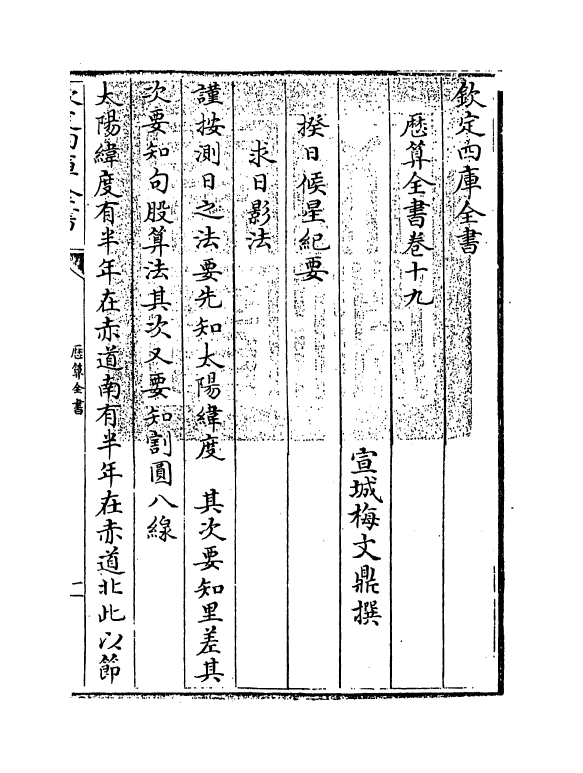 欽定四庫全書
厯算全書卷十九
宣城梅文鼎撰
揆日候星紀要
求日影法
謹按測日之法要先知太陽緯度　其次要知里差其
次要知句股算法其次又要知割圓八線
太陽緯度有半年在赤道南有半年在赤道北此以節
欽定四庫全書
厯算全書
一